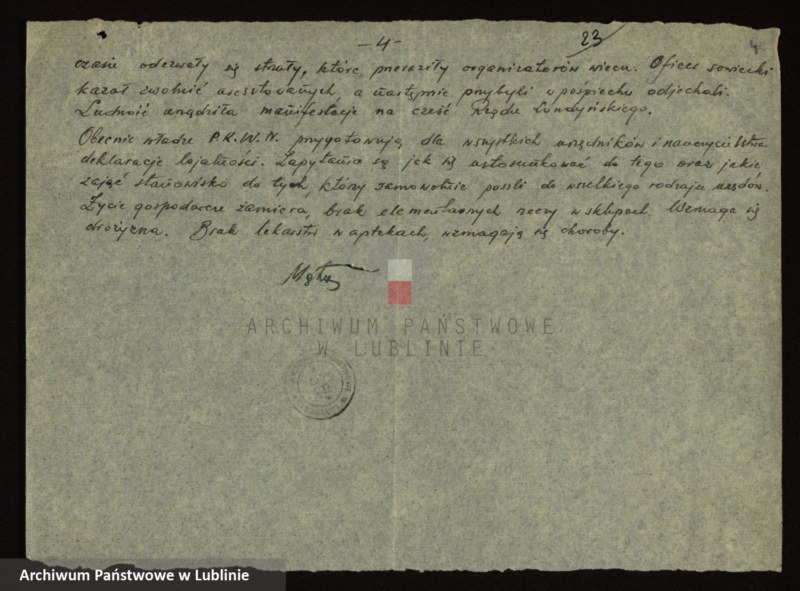 - 4 -
23
4
czasie odezwały się strzały, które przeraziły organizatorów wiecu. Oficer sowiecki
kazał zwolnić aresztowanych, a następnie przybyli w pośpiechu odjechali.
Ludność urządziła manifestację na cześć Rządu Londyńskiego.
Obecnie władze P.K.W.N. przygotowują dla wszystkich urzędników i nauczycielstwa
deklaracje lojalności. Zapytania są jak się ustosunkować do tego oraz jakie
zająć stanowisko do tych, który samowolnie poszli do wszelkiego rodzaju urzędów.
Życie gospodarcze zamiera, brak elementarnych rzeczy w sklepach. Wzmaga się
drożyzna. Brak lekarstw w aptekach, wzmagają się choroby.
ARCHIWUM PAŃSTWOWE
W LUBLINIE
Archiwum Państwowe w Lublinie